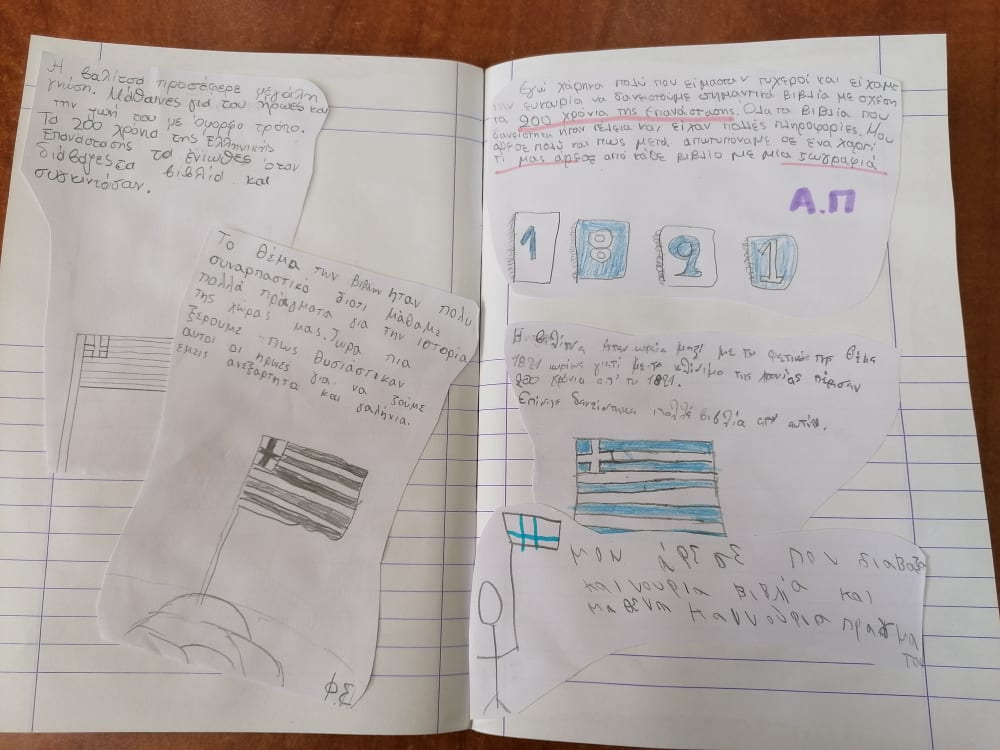 Η βαλίτσα προσέφερε μεγάλη
γνώση. Μάθαινες για του ήρωες και
την ζωή του με όμορφο τρόπο.
Τα 200 χρόνια της Ελληνικής
Επανάστασης τα ένιωθες όταν
διάβαζες τα βιβλία και
Το θέμα των βιβλίων ήταν πολύ
συναρπαστικό διοτι μάθαμε
πολλά πράγματα για την ιστορία
της χώρας μας. Τώρα πια
ξέρουμε πως θυσιάστικαν
αυτοί οι ήρωες για να ζούμε
εμείς ανεξάρτητα και γαλήνια.
Εγώ χάρηκα πολύ που είμασταν τυχεροί και είχαμε
την ευκαιρία να δανειστούμε σημαντικά βιβλία με σχέση
τα 200 χρόνια της Επανάστασης. Όλα τα βιβλία που
δανείστηκα ήταν τέλεια και είχαν πολλές πληροφορίες. Μου
άρεσε πολύ και πως μετά αποτυπόναμε σε ένα χαρτί
τι μας άρεσε από κάθε βιβλίο με μία ζωγραφιά
Α.Π
1 8 2 1
Η βαλίτσα ήταν ωραία μαζί με το της θέμα
1821 κυρίως γιατί με το της χρονιάς πέρασαν
200 χρόνια απ' το 1821.
Επίσης δανείστηκα πολλά βιβλία απ' αυτήν.
μου άρεσε που διαβαζα
καινουρια βιβλία και
μαθενα καινούρια πραγμα
τα